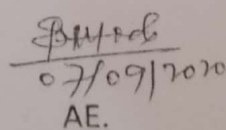 07/09/2020
AE.